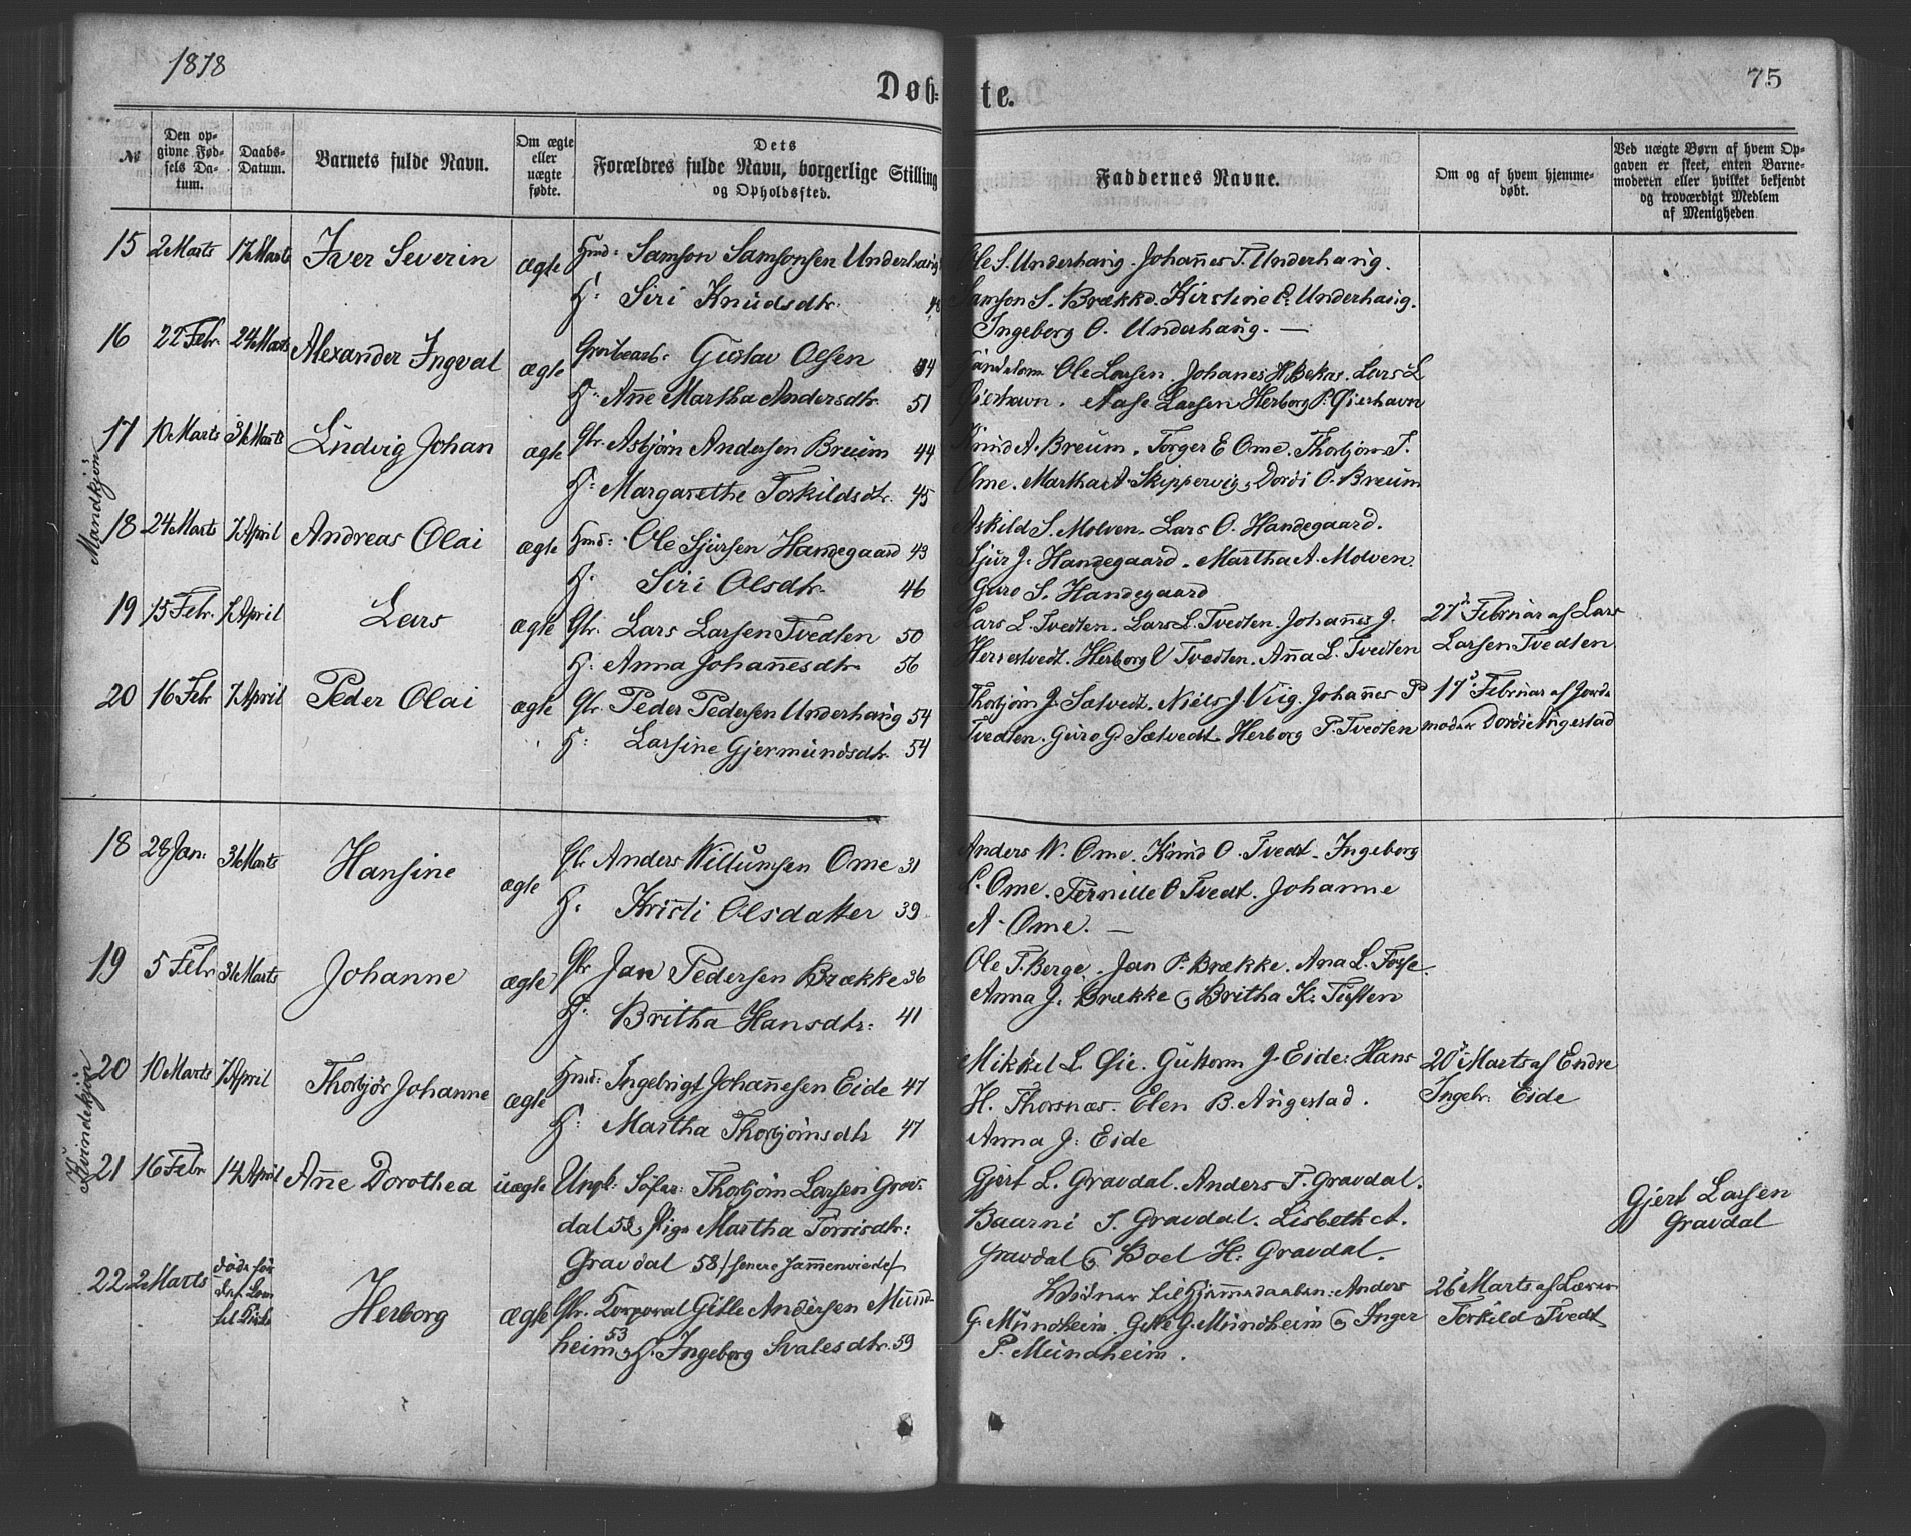 1878
75
Døb-te.
№
Den opgivne Fødsels Datum.
Daabs-Datum.
Barnets fulde Navn.
Om ægte eller uægte fødte.
Dets Forældres fulde Navn, borgerlige Stilling og Opholdssted.
Faddernes Navne.
Om og af hvem hjemmedøbt.
Ved uægte Børn af hvem Opgaven er skeet, enten Barnemoderen eller hvilket bekjendt og troværdigt Medlem af Menigheden
Mandkjøn
15 2 Marts 17 Marts Iver Severin ægte Hmd: Samson Samsonsen Underhaug
H: Siri Knudsdtr.
Ole S. Underhaug. Johañes T. Underhaug.
Samson S. Brække. Kirstine O. Underhaug.
Ingeborg O. Underhaug. —
16 22 Febr. 24 Marts Alexander Ingval ægte Grubearb: Gustav Olsen 44
H: Añe Martha Andersdtr. 51
Ole Larsen. Johanes H. Bekas. Lars L.
Øierhavn. Aase Larsen Herborg P. Øierhavn
17 10 Marts 31 Marts Ludvig Johan ægte Gbr. Asbjørn Andersen Breum 44
H: Margarethe Torkildsdtr. 45
Knud A. Breum. Torger E Ome. Thorbjørn T.
Ome. Martha A. Skippervig, Dordi O. Breum
18 24 Marts 7 April Andreas Olai ægte Hmd: Ole Sjursen Handegaard 43
H. Siri Olsdtr. 46
Askild S. Molven. Lars O. Handegaard.
Sjur J. Handegaard. Martha A. Molven.
Guro S. Handegaard
19 15 Febr. 7 April Lars ægte Gbr. Lars Larsen Tvedten 50
H: Anna Johañesdtr. 56
Lars L. Tvedten. Lars L. Tvedten. Johañes J.
Herrestvedt. Herborg V Tvedten. Aña L. Tvedten
27 Februar af Lars
Larsen Tvedten
20 16 Febr 7 April Peder Olai ægte Gbr. Peder Pedersen Underhaug 54
H: Larsine Gjermundsdtr. 54
Thorbjørn J. Sætvedt. Niels J. Viig. Johañes P
Tvedten. Guro G. Sætvedt. Herborg P. Tvedten
17 Februar af Jorde
moder Dordi Augestad
Kvindekjøn
18 28 Jan: 31 Marts Hansine ægte Gbr Anders Villumsen Ome 31
H. Kristi Olsdatter 39
Anders W. Ome. Knud O. Tvedt. Ingeborg
L. Ome. Pernille O Tvedt. Johanne
A. Ome. —
19 5 Febr 31 Marts Johanne ægte Gbr Jan Pedersen Brække 36
H. Britha Hansdtr: 41
Ole T. Berge. Jan P. Brække. Ana L. Fosse.
Anna J. Brække & Britha K. Tuften
20 10 Marts 7 April Thorbjør Johanne ægte Hmd: Ingebrigt Johañesen Eide 47
H: Martha Thorbjørnsdtr 47
Mikkel L. Øie. Guttorm J. Eide. Hans
H. Thorsnæs. Elen B. Augestad.
Anna J. Eide
20 Marts af Endre
Ingebr: Eide
21 16 Febr 14 April Añe Dorothea uægte Ungk: Søfar: Thorbjørn Larsen Grav-
dal 53 & Pige Martha Torrisdtr:
Gravdal 58 / senere sammenviede /
Gjert L. Gravdal. Anders T. Gravdal.
Baarni S. Gravdal. Lisbeth A.
Gravdal & Boel H. Gravdal.
Gjert Larsen
Gravdal
22 2 Marts døde før
det kom
til Kirke
Herborg ægte Gbr. Korporal Gitle Andersen Mund-
heim 53 & H. Ingeborg Svalesdtr. 59
Vidner til Hjemmedaaben. Anders
G. Mundheim. Gitle G. Mundheim & Inger
P. Mundheim.
26 Marts af Lærer
Torkild Tvedt